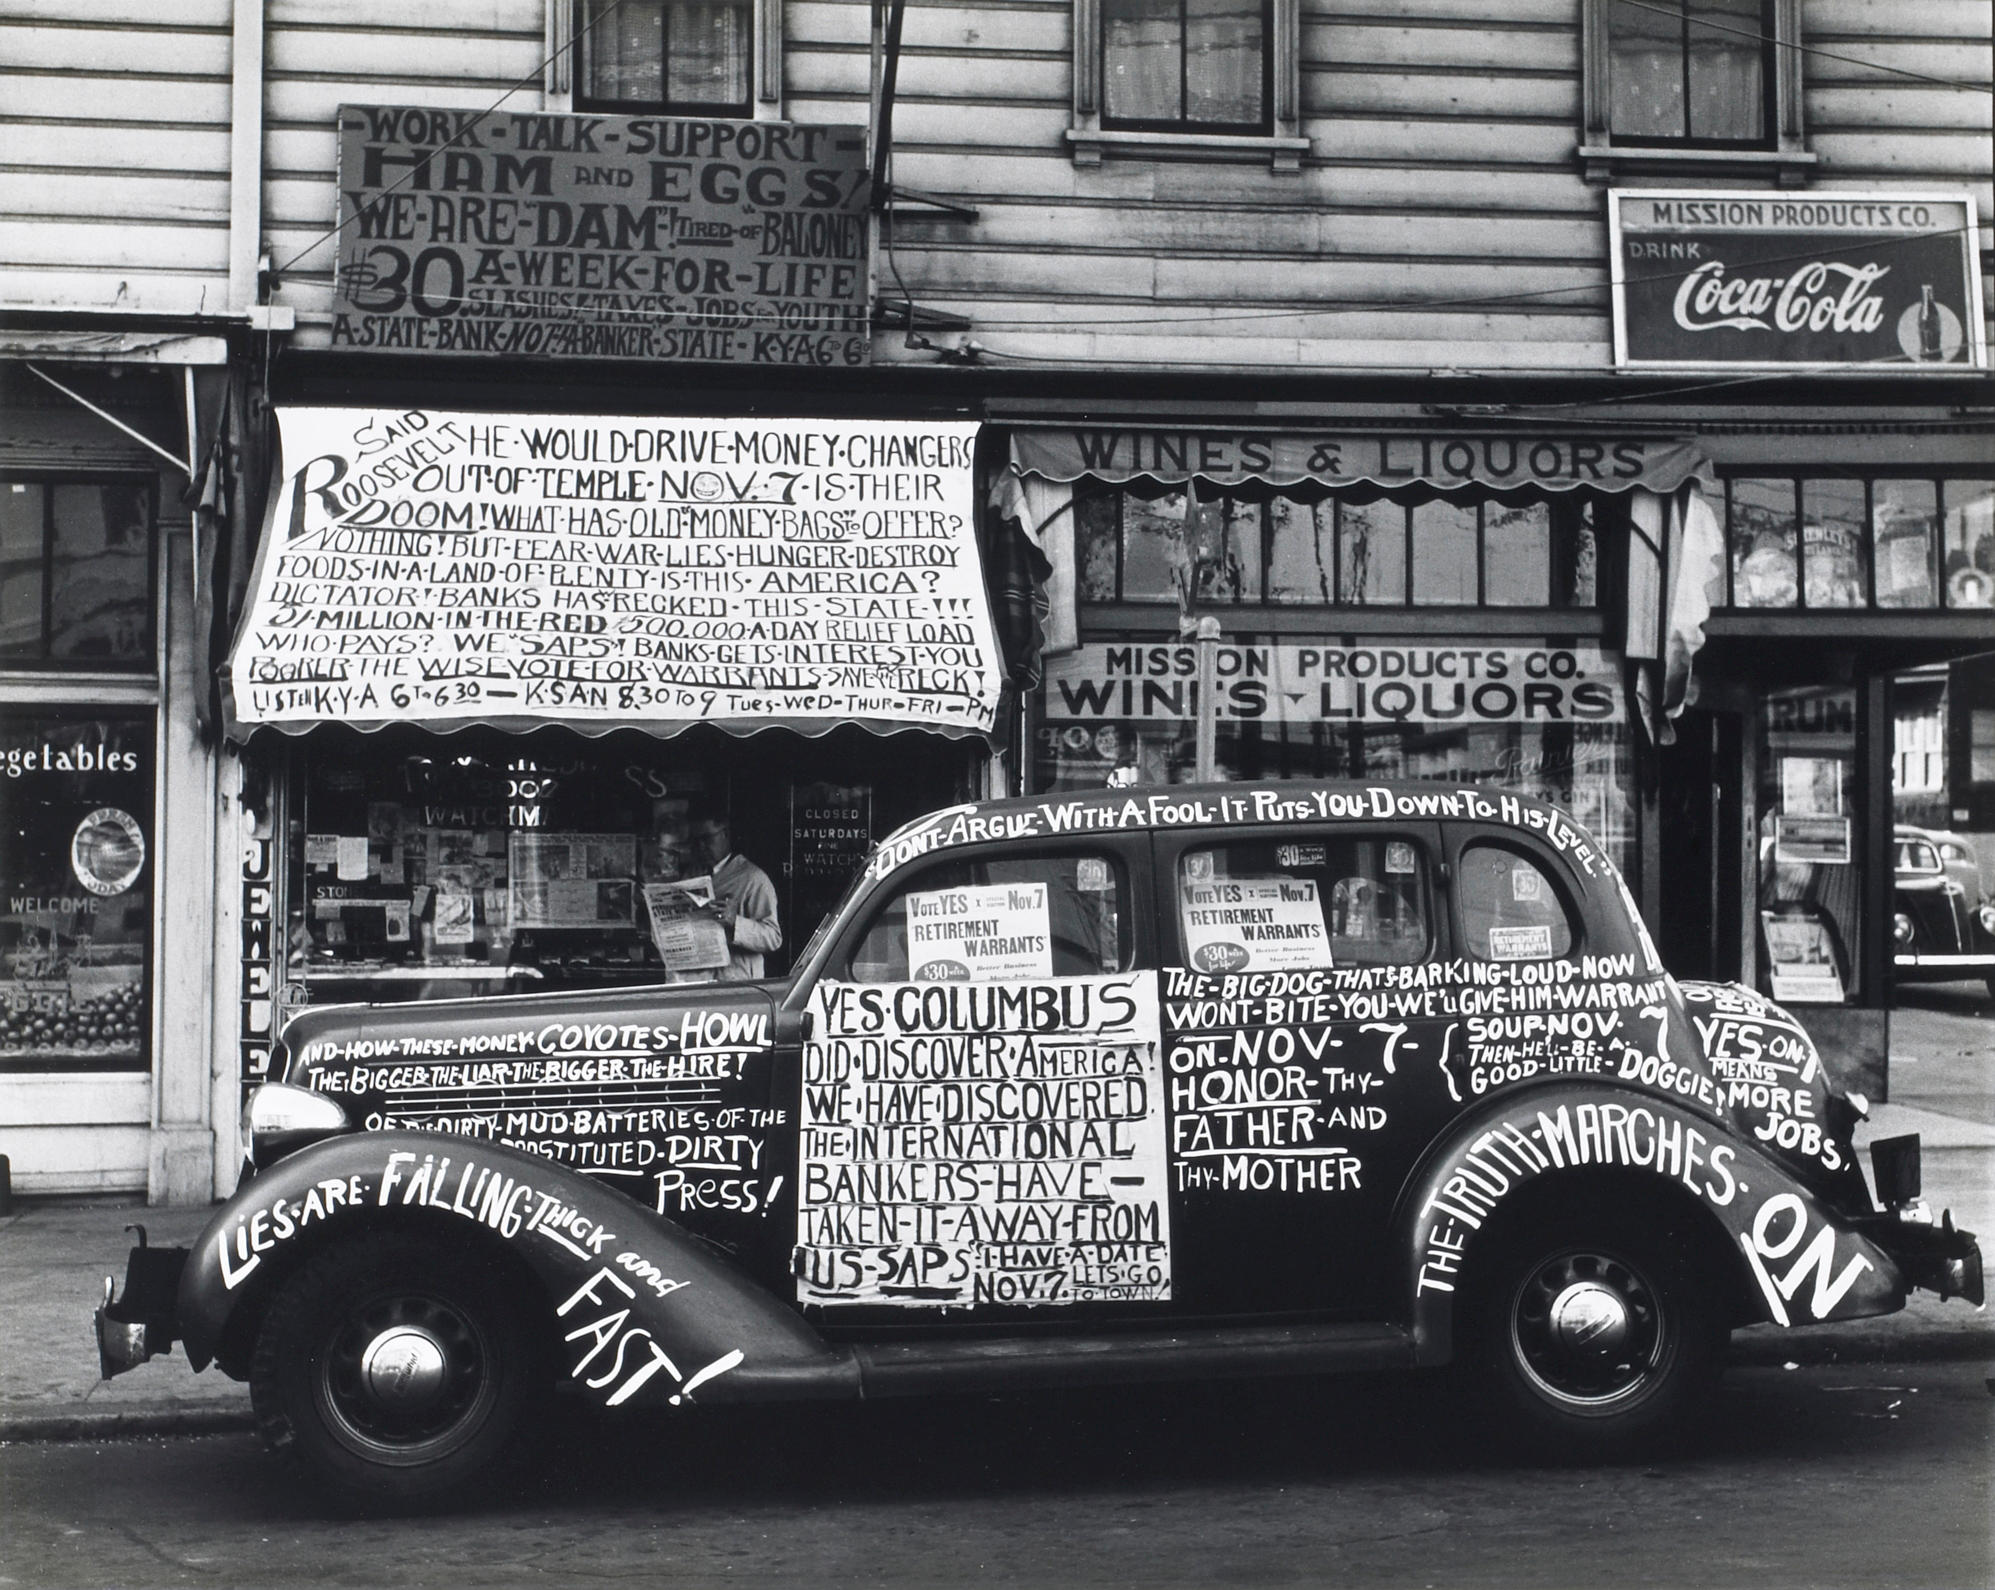 -WORK-TALK-SUPPORT-
HAM AND EGGS!
WE-ARE-"DAM"-!TIRED-OF "BALONEY
$30 A-WEEK-FOR-LIFE
SLASHES!-TAXES-JOBS-YOUTH
A-STATE-BANK-NOT-A-BANKER-STATE-K-Y-A 6 TO 6 30
MISSION PRODUCTS CO.
DRINK
Coca-Cola
SAID
ROOSEVELT HE·WOULD·DRIVE·MONEY·CHANGERS
OUT·OF·TEMPLE·NOV.·7·IS·THEIR
DOOM!WHAT·HAS·OLD"MONEY·BAGS"TO OFFER?
NOTHING!BUT·FEAR·WAR·LIES·HUNGER·DESTROY
FOODS·IN·A·LAND·OF·PLENTY·IS·THIS·AMERICA?
DICTATOR!·BANKS HAS"RECKED·THIS·STATE·!!!
51·MILLION·IN·THE·RED $500.000·A·DAY RELIEF LOAD
WHO·PAYS? WE "SAPS"! BANKS·GETS·INTEREST·YOU
POORER·THE WISE·VOTE·FOR·WARRANTS·SAVE THE RECK!
LISTEN K·Y·A 6 TO 6 30 — K·SAN 8.30 TO 9 TUES-WED-THUR-FRI-PM
WINES & LIQUORS
MISSION PRODUCTS CO.
WINES - LIQUORS
RUM
egetables
FRESH
TODAY
WELCOME
EGGS
JEWELE
WATCHMA
CLOSED
SATURDAYS
FINE
WATCH
STONE
DONT-ARGUE-WITH-A FOOL-IT PUTS-YOU-DOWN-TO-HIS-LEVEL"
VOTE YES X SPECIAL ELECTION Nov. 7
RETIREMENT
WARRANTS
$30 a wk.
Better Business
VOTE YES X SPECIAL ELECTION Nov. 7
RETIREMENT
WARRANTS
$30 a wk. for life!
Better Business
More Jobs
$30 a week for life
30
RETIREMENT
WARRANTS
AND-HOW-THESE-MONEY·COYOTES-HOWL
THE·BIGGER·THE·LIAR·THE·BIGGER·THE·HIRE!
MUD·BATTERIES·OF·THE
DIRTY
PRESS!
LIES·ARE·FALLING·THICK and
FAST!
YES·COLUMBUS
DID·DISCOVER·AMERICA!
WE·HAVE·DISCOVERED
THE·INTERNATIONAL
BANKERS-HAVE—
TAKEN-IT-AWAY-FROM
US-SAPS"I-HAVE·A·DATE
NOV.7. LETS·GO
TO·TOWN!
THE-BIG-DOG-THATS-BARKING-LOUD-NOW
WONT-BITE-YOU-WE'LL GIVE-HIM-WARRANT
SOUP-NOV. 7
THEN-HE'LL-BE-A
GOOD-LITTLE-DOGGIE!
ON-NOV-7-
HONOR-THY-
FATHER-AND
THY-MOTHER
YES-ON-7
MEANS
MORE
JOBS.
THE-TRUTH-MARCHES-ON